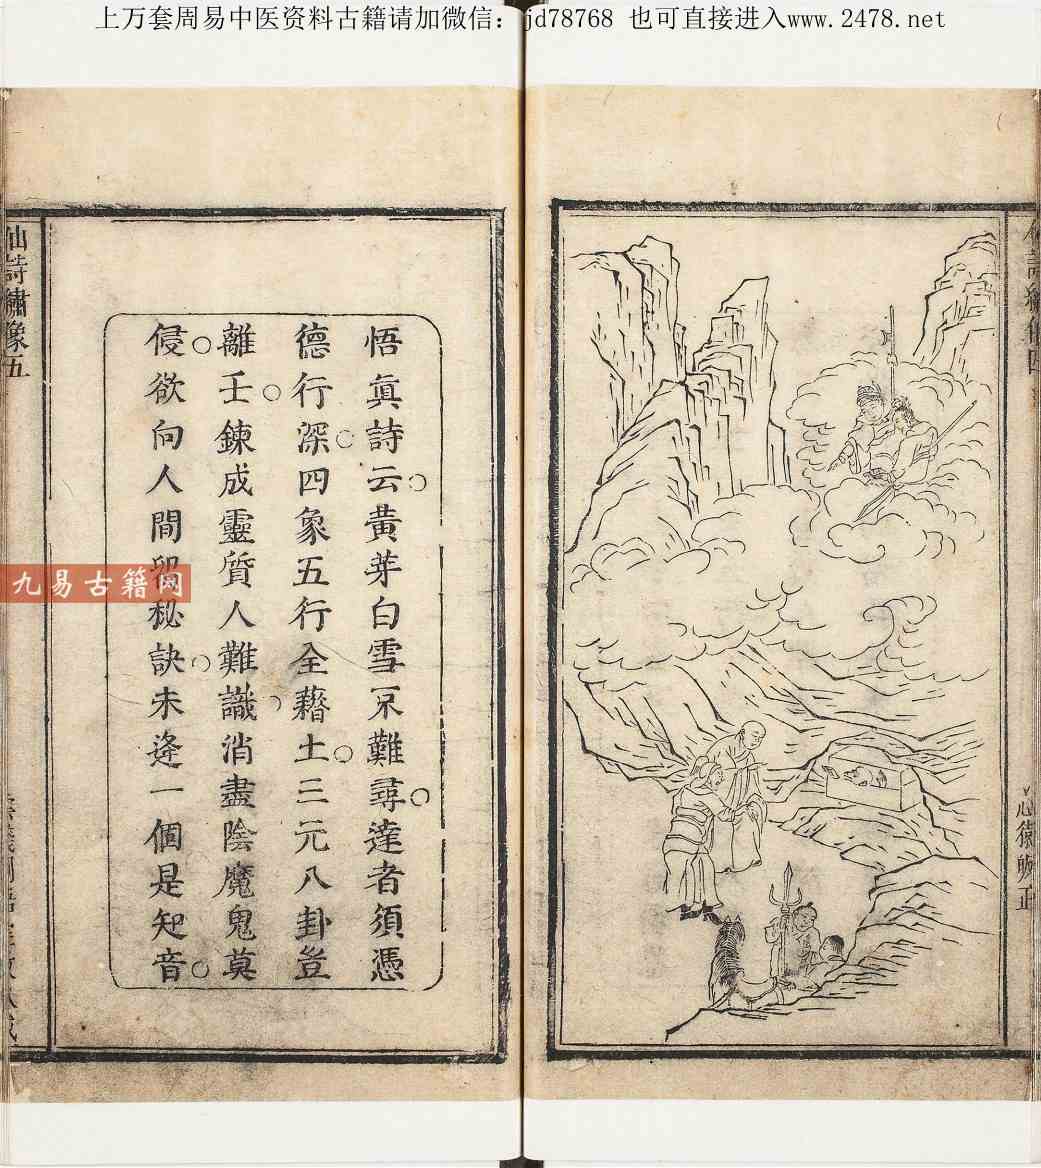 上万套周易中医资料古籍请加微信：jd78768 也可直接进入www.2478.net
悟真詩云黃芽白雪不難尋達者須憑
德行深四象五行全藉土三元八卦豈
離壬鍊成靈質人難識消盡陰魔鬼莫
侵欲向人間留秘訣未逢一個是知音
仙詩繡像五
九易古籍网